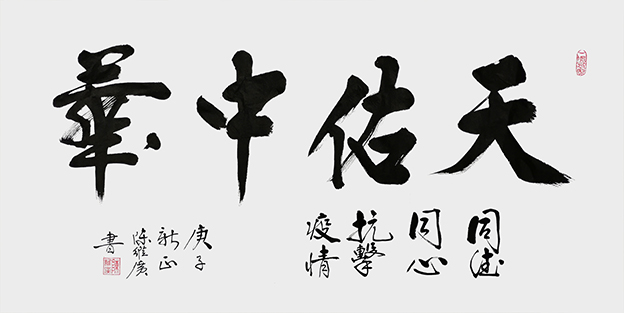 天佑中華
同德
同心
抗擊
疫情
庚子
新正
陳維廣
書